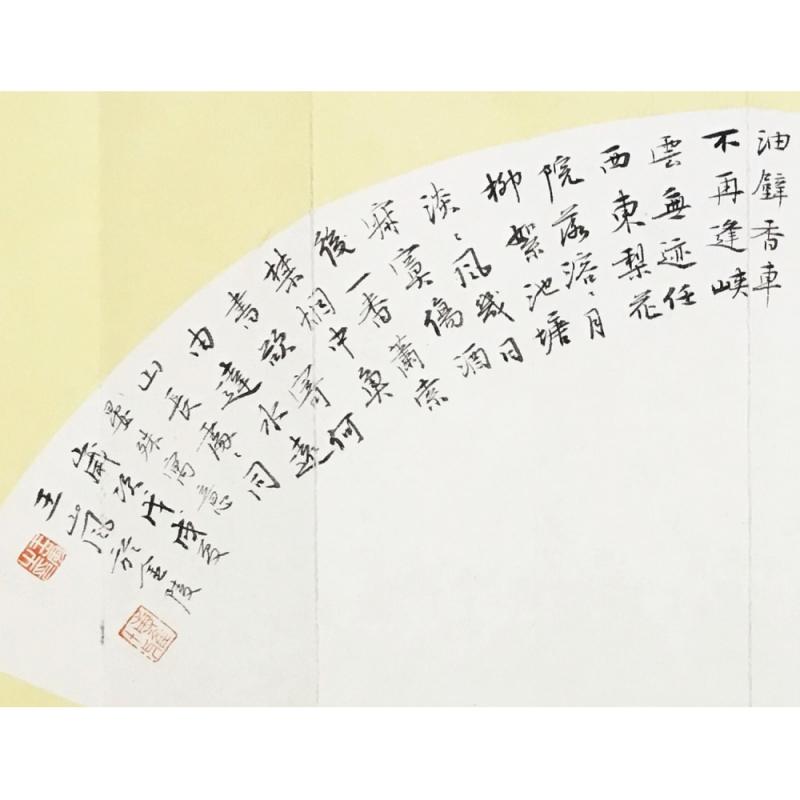 油壁香車
不再逢峽
雲無迹任
西東梨花
院落溶、月
柳絮池塘
淡、風幾日
寂寞傷酒
後一番蕭索
禁烟中魚
書欲寄何
由達水遠
山長處、同
晏殊寓意
歲次戊戌夏
王於金陵